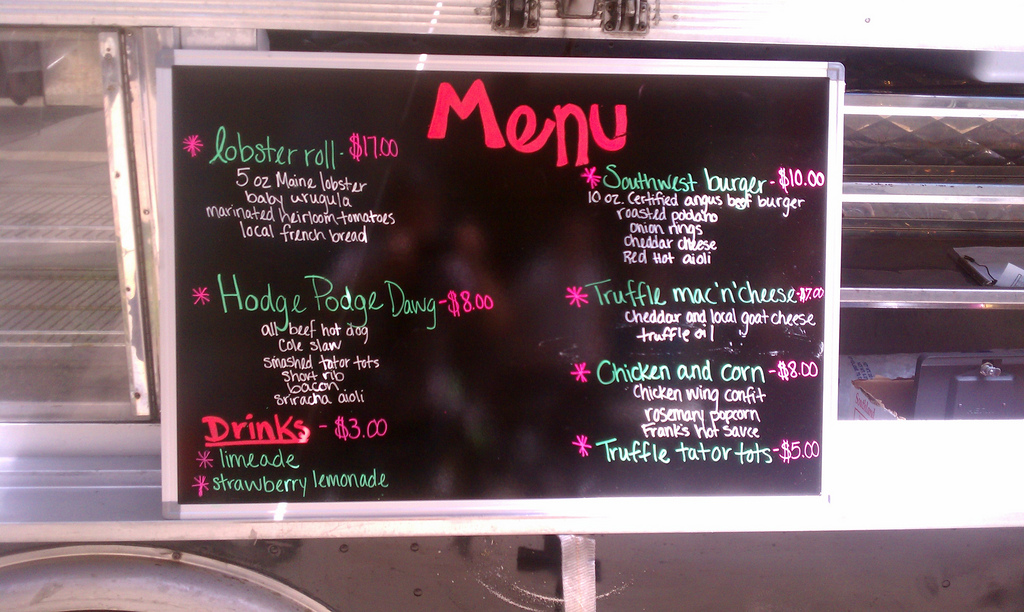 Menu
* lobster roll - $17.00
5 oz Maine lobster
baby urugula
marinated heirloom tomatoes
local french bread
* Hodge Podge Dawg - $8.00
all beef hot dog
Cole slaw
smashed tator tots
short rib
bacon
sriracha aioli
Drinks - $3.00
* limeade
* strawberry lemonade
* Southwest burger - $10.00
10 oz. Certified angus beef burger
roasted poblano
onion rings
cheddar cheese
Red Hot aioli
* Truffle mac'n'cheese - $7.00
cheddar and local goat cheese
truffle oil
* Chicken and corn - $8.00
Chicken wing confit
rosemary popcorn
Frank's hot sauce
* Truffle tator tots - $5.00